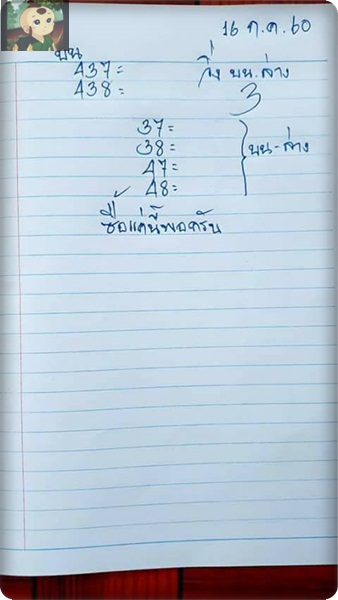 16 ก.ค. 60
บน
437=
438=
วิ่ง บน.ล่าง
3
37=
38=
47=
48=
บน-ล่าง
ซื้อแค่นี้พอครับ